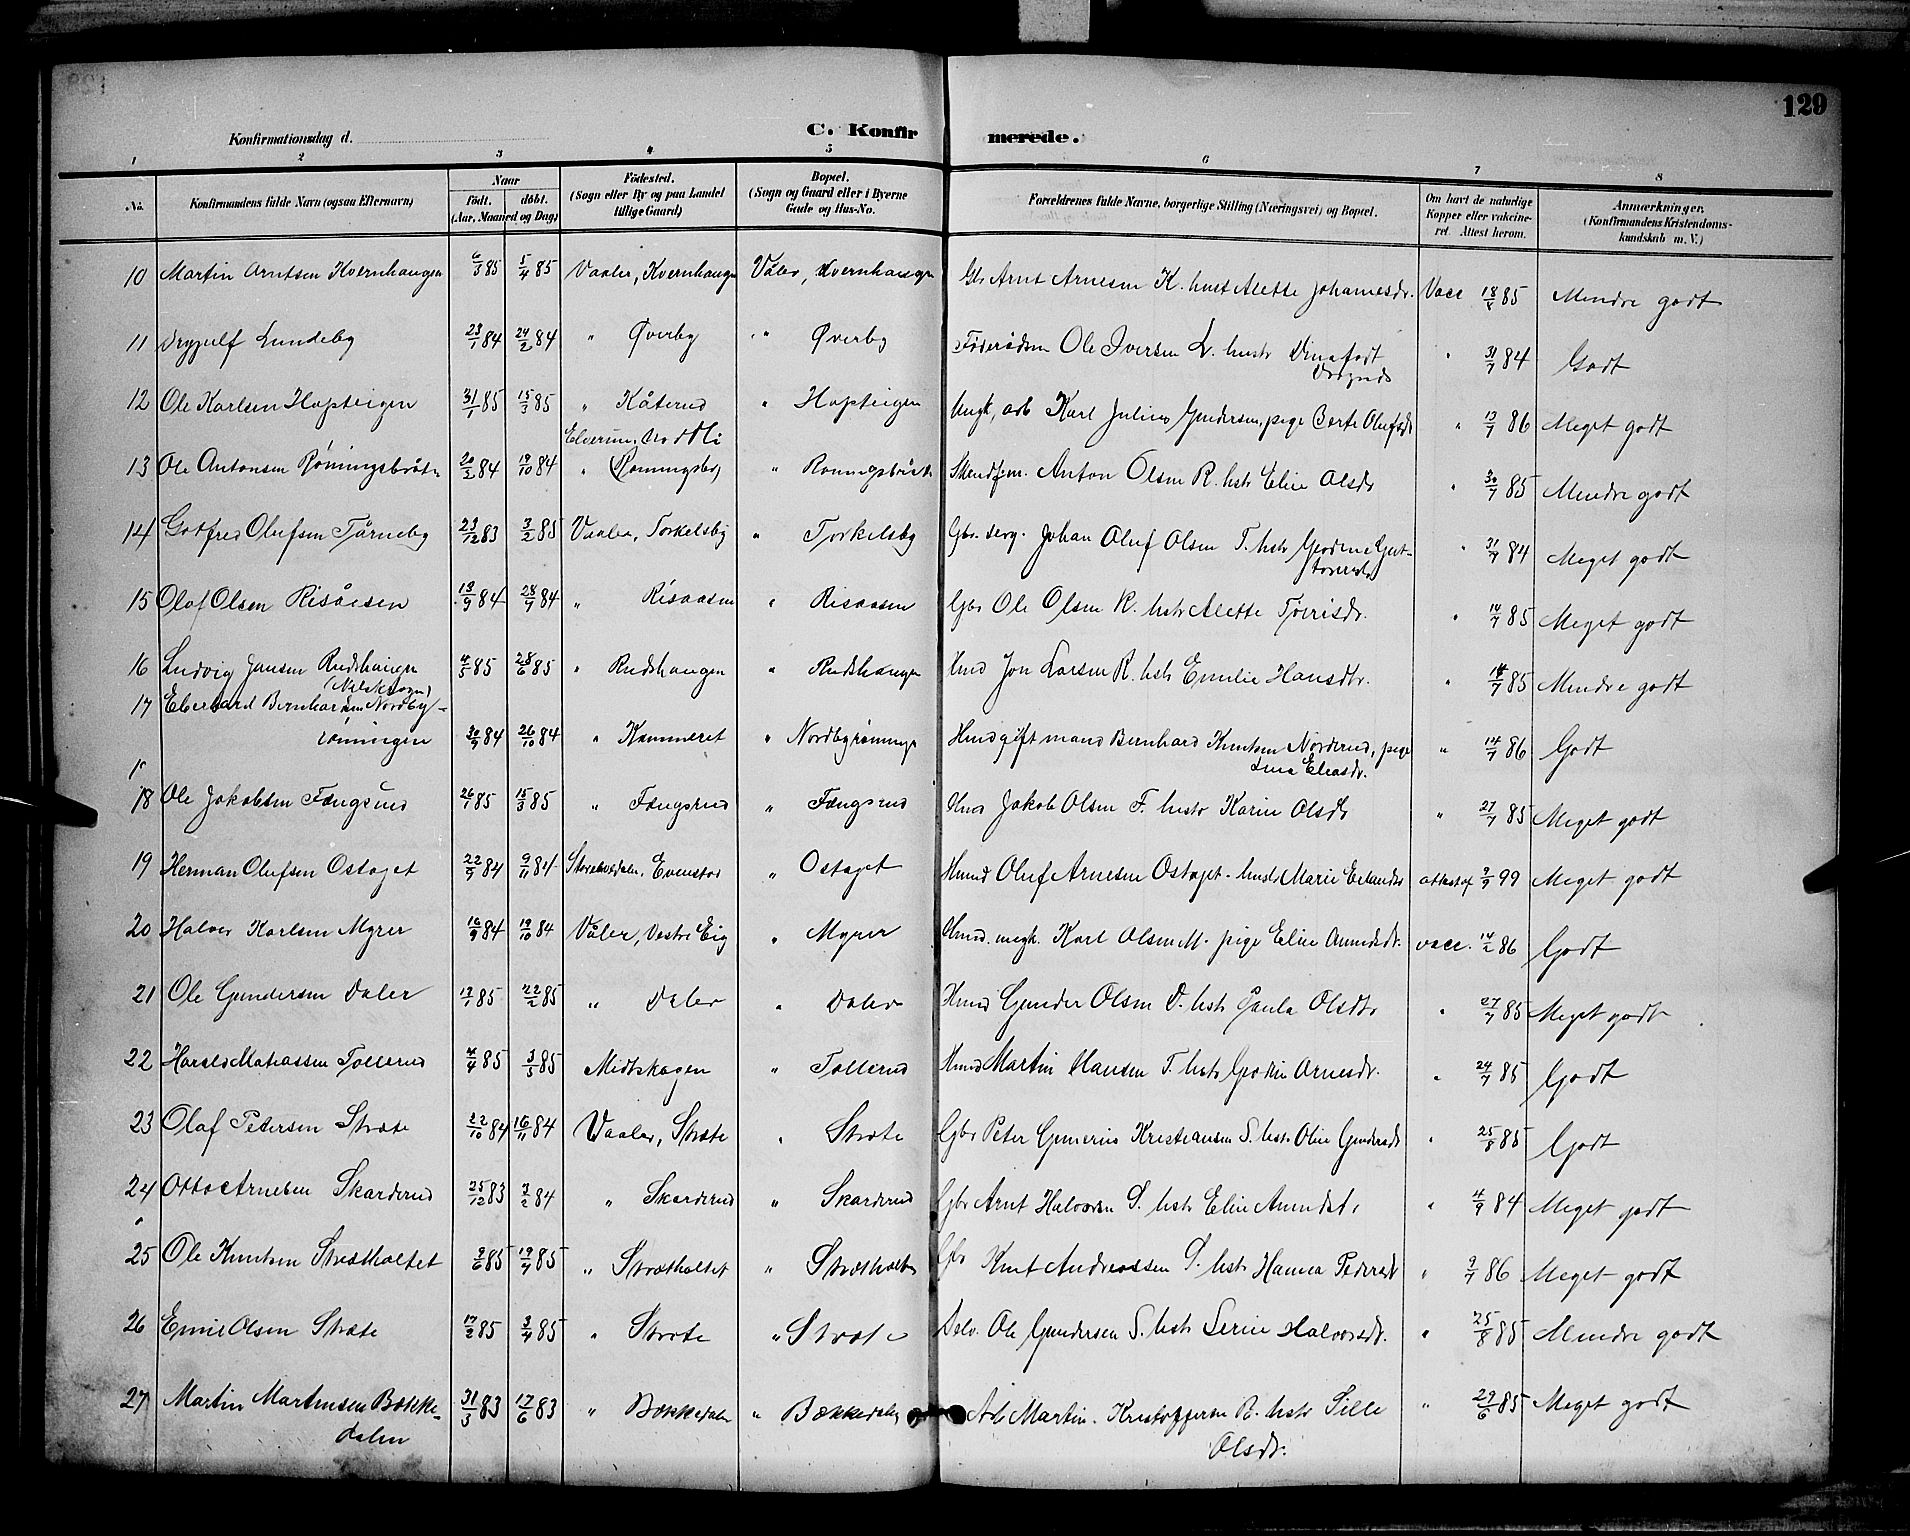 129
Konfirmationsdag d.
C. Konfirmerede.
1 2 3 4 5 6 7 8
No. Konfirmandens fulde Navn (ogsaa Efternavn) Naar født. døbt. (Aar, Maaned og Dag) Fødested. (Sogn eller By og paa Landet tillige Gaard) Bopæl. (Sogn og Gaard eller i Byerne Gade og Hus-No. Forældrenes fulde Navne, borgerlige Stilling (Næringsvei) og Bopæl. Om havt de naturlige Kopper eller vakcineret. Attest herom. Anmærkninger. (Konfirmandens Kristendomskundskab m. V.)
10 Martin Arntsen Kvernhaugen 6/3 85 5/4 85 Vaaler, Kvernhaugen Våler, Kvernhaugen Gbr Arnt Arnesen K. hust Alette Johannesdr. Vacc 18/8 85 Mindre godt
11 Lundeby 23/1 84 24/2 84 " Øverby " Øverby Føderådsm Ole Iversen L. hustr Dina født
31/7 84 Godt
12 Ole Karlsen Hapteigen 31/1 85 15/3 85 " Kåterud " Hapteigen Ungk, arb Karl Julius Gundersen, pige Berte Olufsdr " 13/7 86 Meget godt
Elverum, Nordli
13 Ole Antonsen Rønningsbråtn 20/2 84 19/10 84 " (Rønningsbr) " Rønningsbråt Anton Olsen R. hstr Eline Olsdr " 30/7 85 Mindre godt
14 Gotfred Olufsen Tårneby 23/12 83 3/2 85 Vaaler, Torkelsby " Torkelsby Gbr. serg. Johan Oluf Olsen T. hstr Gust-
" 31/7 84 Meget godt
15 Olaf Olsen Risåsen 13/9 84 28/9 84 " Risaasen " Risaasen Gbr Ole Olsen R. hstr Alette " 14/7 85 Meget godt
16 Ludvig Jansen Rudshaugen 4/5 85 28/6 85 " Rudshaugen " Rudshaugen Hmd Jon Larsen R. hstr Emilie Hansdtr. " 14/7 85 Mindre godt
17 Eberhard Bernhardsen Nordby-
rønningen 30/9 84 26/10 84 " Kammeret " Nordbyrønninge Hmd gift mand Bernhard Knutsen Norderud, pige
Lina Eliasdr. " 14/7 86 Godt
18 Ole Jakobsen Fængsrud 26/1 85 15/3 85 " Fængsrud " Fængsrud Hmd Jakob Olsen F. hustr Karin Olsdtr " 27/7 85 Meget godt
19 Herman Olufsen Ostaget 22/9 84 9/11 84 Storelvedalen, Evenstad " Ostaget Hmd Oluf Arnesen Ostaget. hustr Marie Erlandsdr attest af 9/9 99 Meget godt
20 Halvor Karlsen Myrer 16/9 84 19/10 84 Våler, Vestre Eig " Myrer Hmd. ungk. Karl Olsen M. pige Eline Amundsdr. vacc. 14/2 86 Godt
21 Ole Gundersen Daler 13/1 85 22/2 85 " Daler " Daler Hmd Gunder Olsen D. hstr Paula Olsdtr " 27/7 85 Meget godt
22 Harald Matiassen Tollerud 4/4 85 3/5 85 Midtskogen " Tollerud Hmd Martin Hansen T. hstr Arnesdr. " 24/7 85 Godt
23 Olaf Pedersen Stræte 22/10 84 16/11 84 Vaaler, Stræte " Stræte Gbr Peter Gunerius Kristiansen S. hstr Oline Gundersdr " 25/8 85 Godt
24 Otto Arnesen Skarderud 25/12 83 3/2 84 " Skarderud " Skarderud Gbr Arnt Halvorsen S. hstr Eline Amundsdr " 4/9 84 Meget godt
25 Ole Knutsen Strætholtet 9/6 85 19/7 85 " Strætholtet " Strætholtet Gbr Knut Andreassen S. hstr Hanna Pedersdr " 9/7 86 Meget godt
26 Emil Olsen Stræte 17/2 85 3/4 85 " Stræte " Stræte Ole Gundersen S. hstr Serine Halvorsdr. " 25/8 85 Mindre godt
27 Martin Martinsen Bække-
dalen 31/3 83 17/6 83 " Bækkedalen " Bækkedalen Arb Martin Kristoffersen B. hstr Sille
Olsdr. " 29/6 85 Meget godt